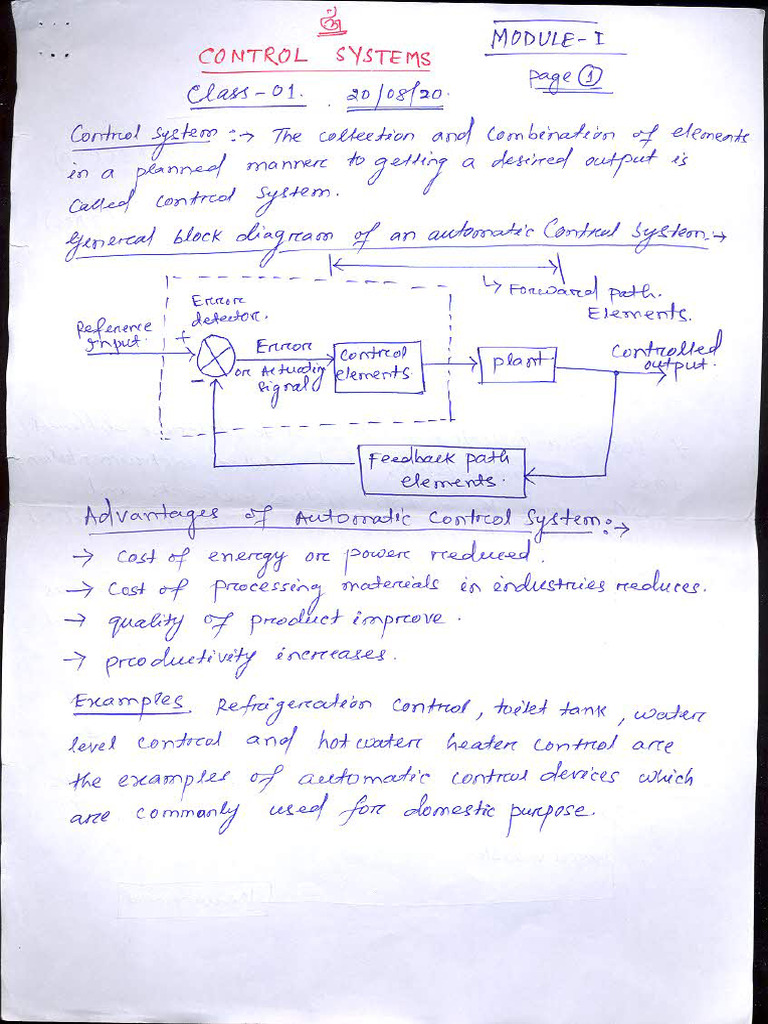 ॐ
CONTROL SYSTEMS
MODULE-I
Class-01. 20/08/20.
page 1
Control system :→ The collection and combination of elements
in a planned manner to getting a desired output is
called control system.
General block diagram of an automatic Control System:→
Forward path
Elements.
Error
detector.
Reference
Input.
+
-
Error
or Actuating
signal
Control
elements.
plant
Controlled
output.
Feedback path
elements.
Advantages of Automatic Control System:→
→ Cost of energy or power reduced.
→ Cost of processing materials in industries reduces.
→ quality of product improve.
→ productivity increases.
Examples. Refrigeration control, toilet tank, water
level control and hot water heater control are
the examples of automatic control devices which
are commonly used for domestic purpose.